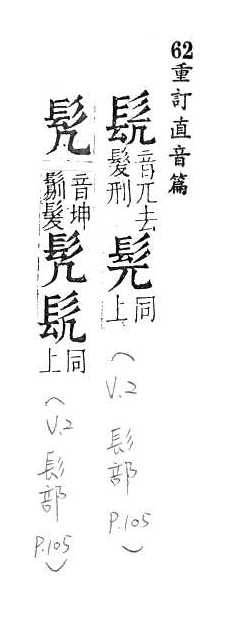 62重訂直音篇
音兀去髮刑髡同上(V.2 髟部 P.105)
髠音坤髮同上(V.2 髟部 P.105)